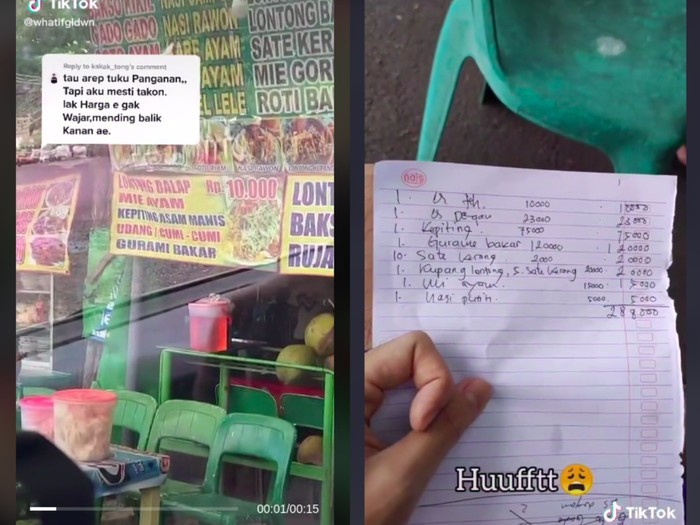 TikTok
@whatifgldwn
BAKSO
NASI
GADO GADO NASI RAWON
LONTONG B
AYAM
SATE KER
AYAM
MIE GOR
LELE
ROTI BA
Reply to
comment
tau arep tuku Panganan,,
Tapi aku mesti takon.
lak Harga e gak
Wajar,mending balik
Kanan ae.
LONTONG BALAP Rp. 10.000
MIE AYAM
KEPITING ASAM MANIS
UDANG / CUMI - CUMI
GURAMI BAKAR
LONT
BAKS
RUJA
00:01/00:15
1. es 10000 10000
1. es Degan 23000 23.000
1. Kepiting 75000 75000
1. Gurame bakar 120000 120000
10. Sate kerang 2000 20000
1. Kupang lontong, 5. Sate kerang 20000 20000
1. Mi ayam 15000 15000
1. Nasi putih 5000 5000
288.000
Huufftt
TikTok